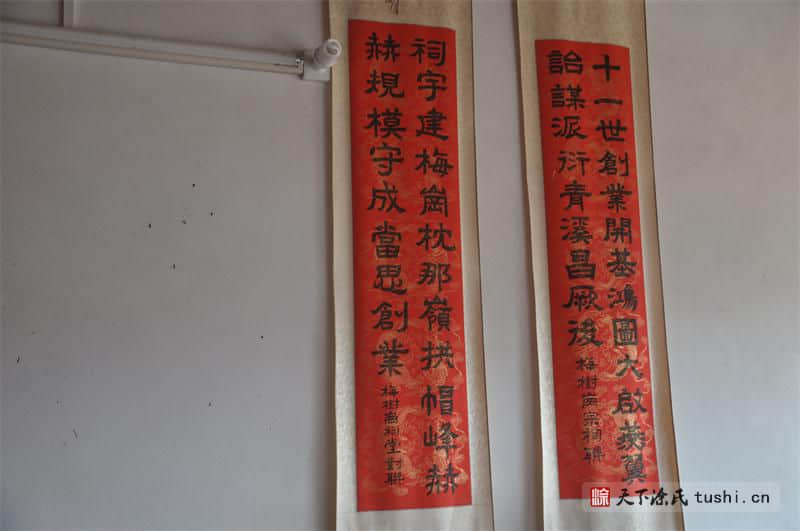 十一世創業開基鴻圖大啟燕翼
詒謀派衍青溪昌厥後
梅樹崗宗祠聯
祠宇建梅崗枕那嶺拱帽峰赫
赫規模守成當思創業
梅樹崗祠堂對聯
天下涂氏 tushi.cn